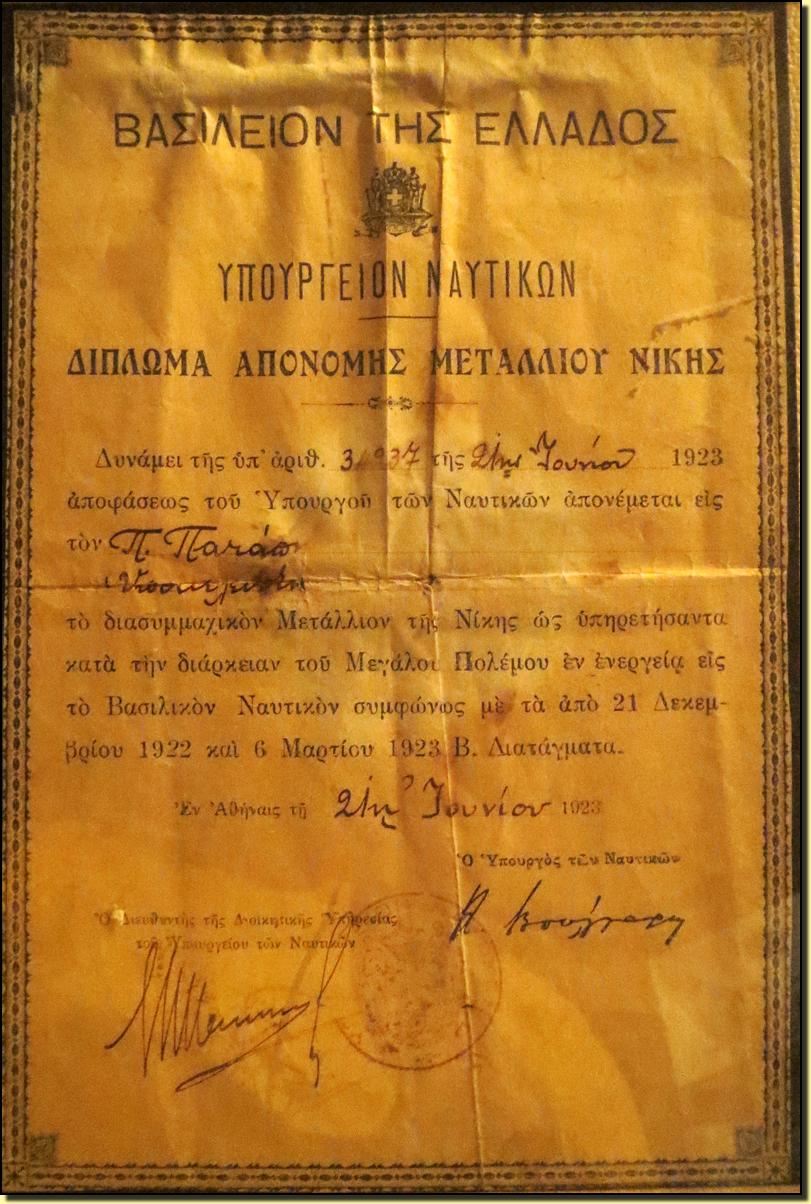 ΒΑΣΙΛΕΙΟΝ ΤΗΣ ΕΛΛΑΔΟΣ
ΥΠΟΥΡΓΕΙΟΝ ΝΑΥΤΙΚΩΝ
ΔΙΠΛΩΜΑ ΑΠΟΝΟΜΗΣ ΜΕΤΑΛΛΙΟΥ ΝΙΚΗΣ
Δυνάμει τῆς ὑπ' ἀριθ. τῆς 21ης Ἰουνίου 1923
ἀποφάσεως τοῦ Ὑπουργοῦ τῶν Ναυτικῶν ἀπονέμεται εἰς
τὸν Π.
τὸ διασυμμαχικὸν Μετάλλιον τῆς Νίκης ὡς ὑπηρετήσαντα
κατὰ τὴν διάρκειαν τοῦ Μεγάλου Πολέμου ἐν ἐνεργείᾳ εἰς
τὸ Βασιλικὸν Ναυτικὸν συμφώνως μὲ τὰ ἀπὸ 21 Δεκεμ-
βρίου 1922 καὶ 6 Μαρτίου 1923 Β. Διατάγματα.
Ἐν Ἀθήναις τῇ 21ῃ Ἰουνίου 1923
Ὁ Ὑπουργὸς τῶν Ναυτικῶν
Ὁ Διευθυντὴς τῆς Διοικητικῆς Ὑπηρεσίας
τοῦ Ὑπουργείου τῶν Ναυτικῶν